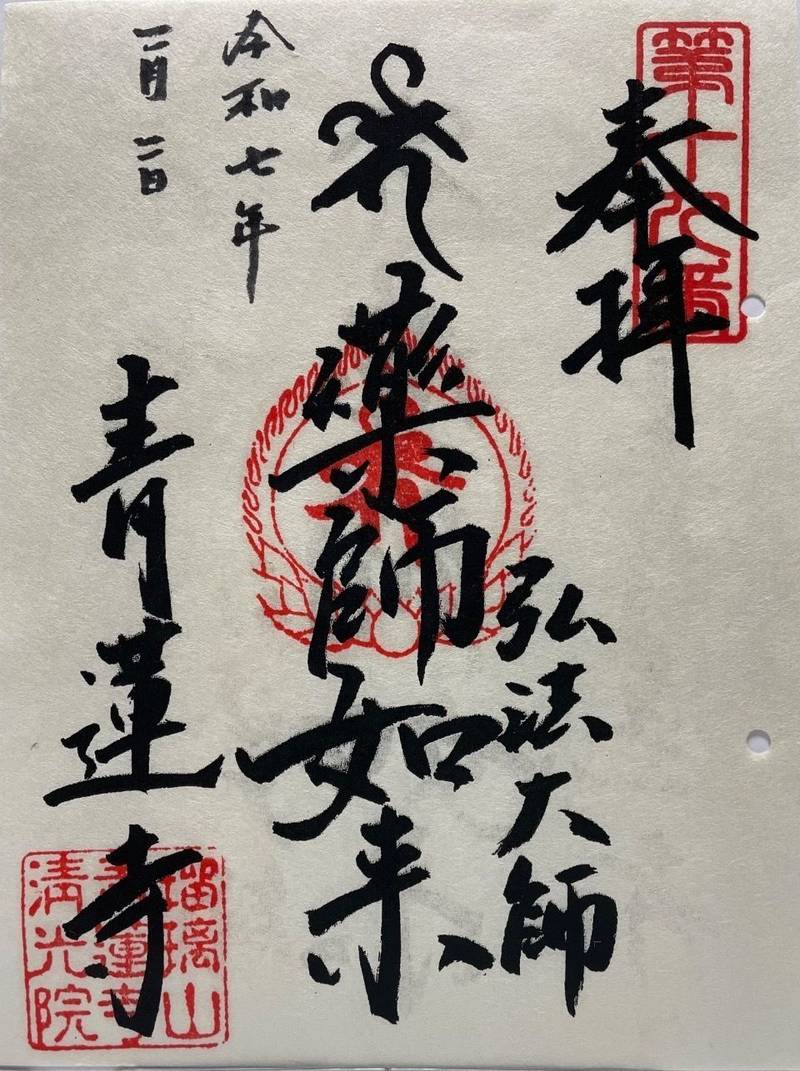 第十九番
奉拝
弘法大師
薬師如来
令和七年
一月二日
青蓮寺
瑠璃山
青蓮寺
清光院